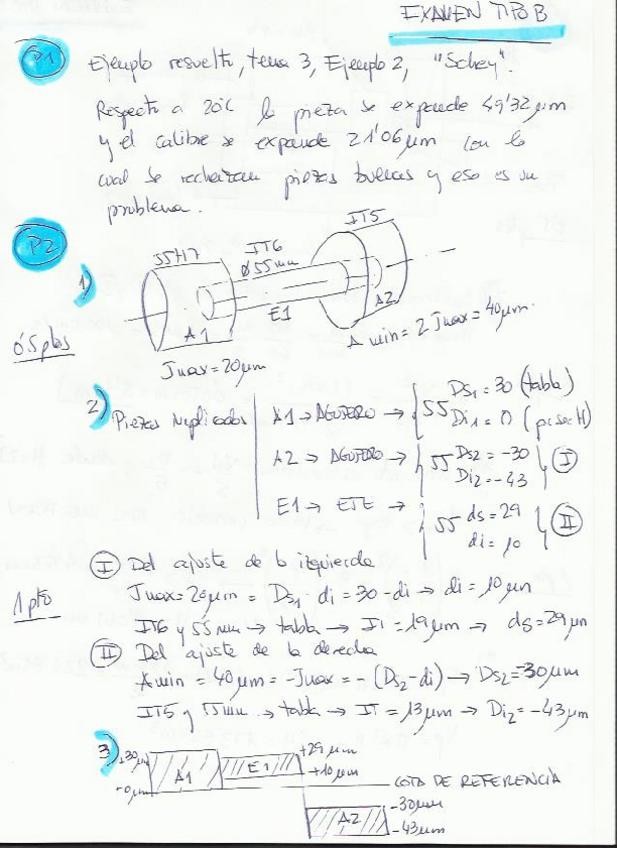 EXAMEN TIPO B
P1
Ejemplo resuelto, tema 3, Ejemplo 2,
Respecto a 20℃ la pieza se expande 49'32 µm
y el calibre se expande 21'06 µm con lo
cual se rechazan piezas buenas y eso es un
problema.
P2
1)
55H7
IT6
Ø55mm
IT5
A1
E1
A2
0'5 ptos
Jmax = 20µm
Amin = 2 Jmax = 40µm.
2) Piezas implicadas
A1 → AGUJERO → 55 Ds1 = 30 (tabla)
Di1 = 0 (por ser H)
A2 → AGUJERO → 55 Ds2 = -30
Di2 = -43 I
E1 → EJE → 55 ds = 29
di = 10 II
I Del ajuste de la izquierda
1 pto
Jmax = 20µm = Ds1 - di = 30 - di → di = 10 µm
IT6 y 55mm → tabla → IT = 19µm → ds = 29µm
II Del ajuste de la derecha
Amin = 40µm = -Jmax = -(Ds2 - di) → Ds2 = -30µm
IT5 y 55mm → tabla → IT = 13µm → Di2 = -43µm
3) +30µm
A1
E1
+29 µm
+10µm
-0µm
COTA DE REFERENCIA
A2
-30µm
-43µm